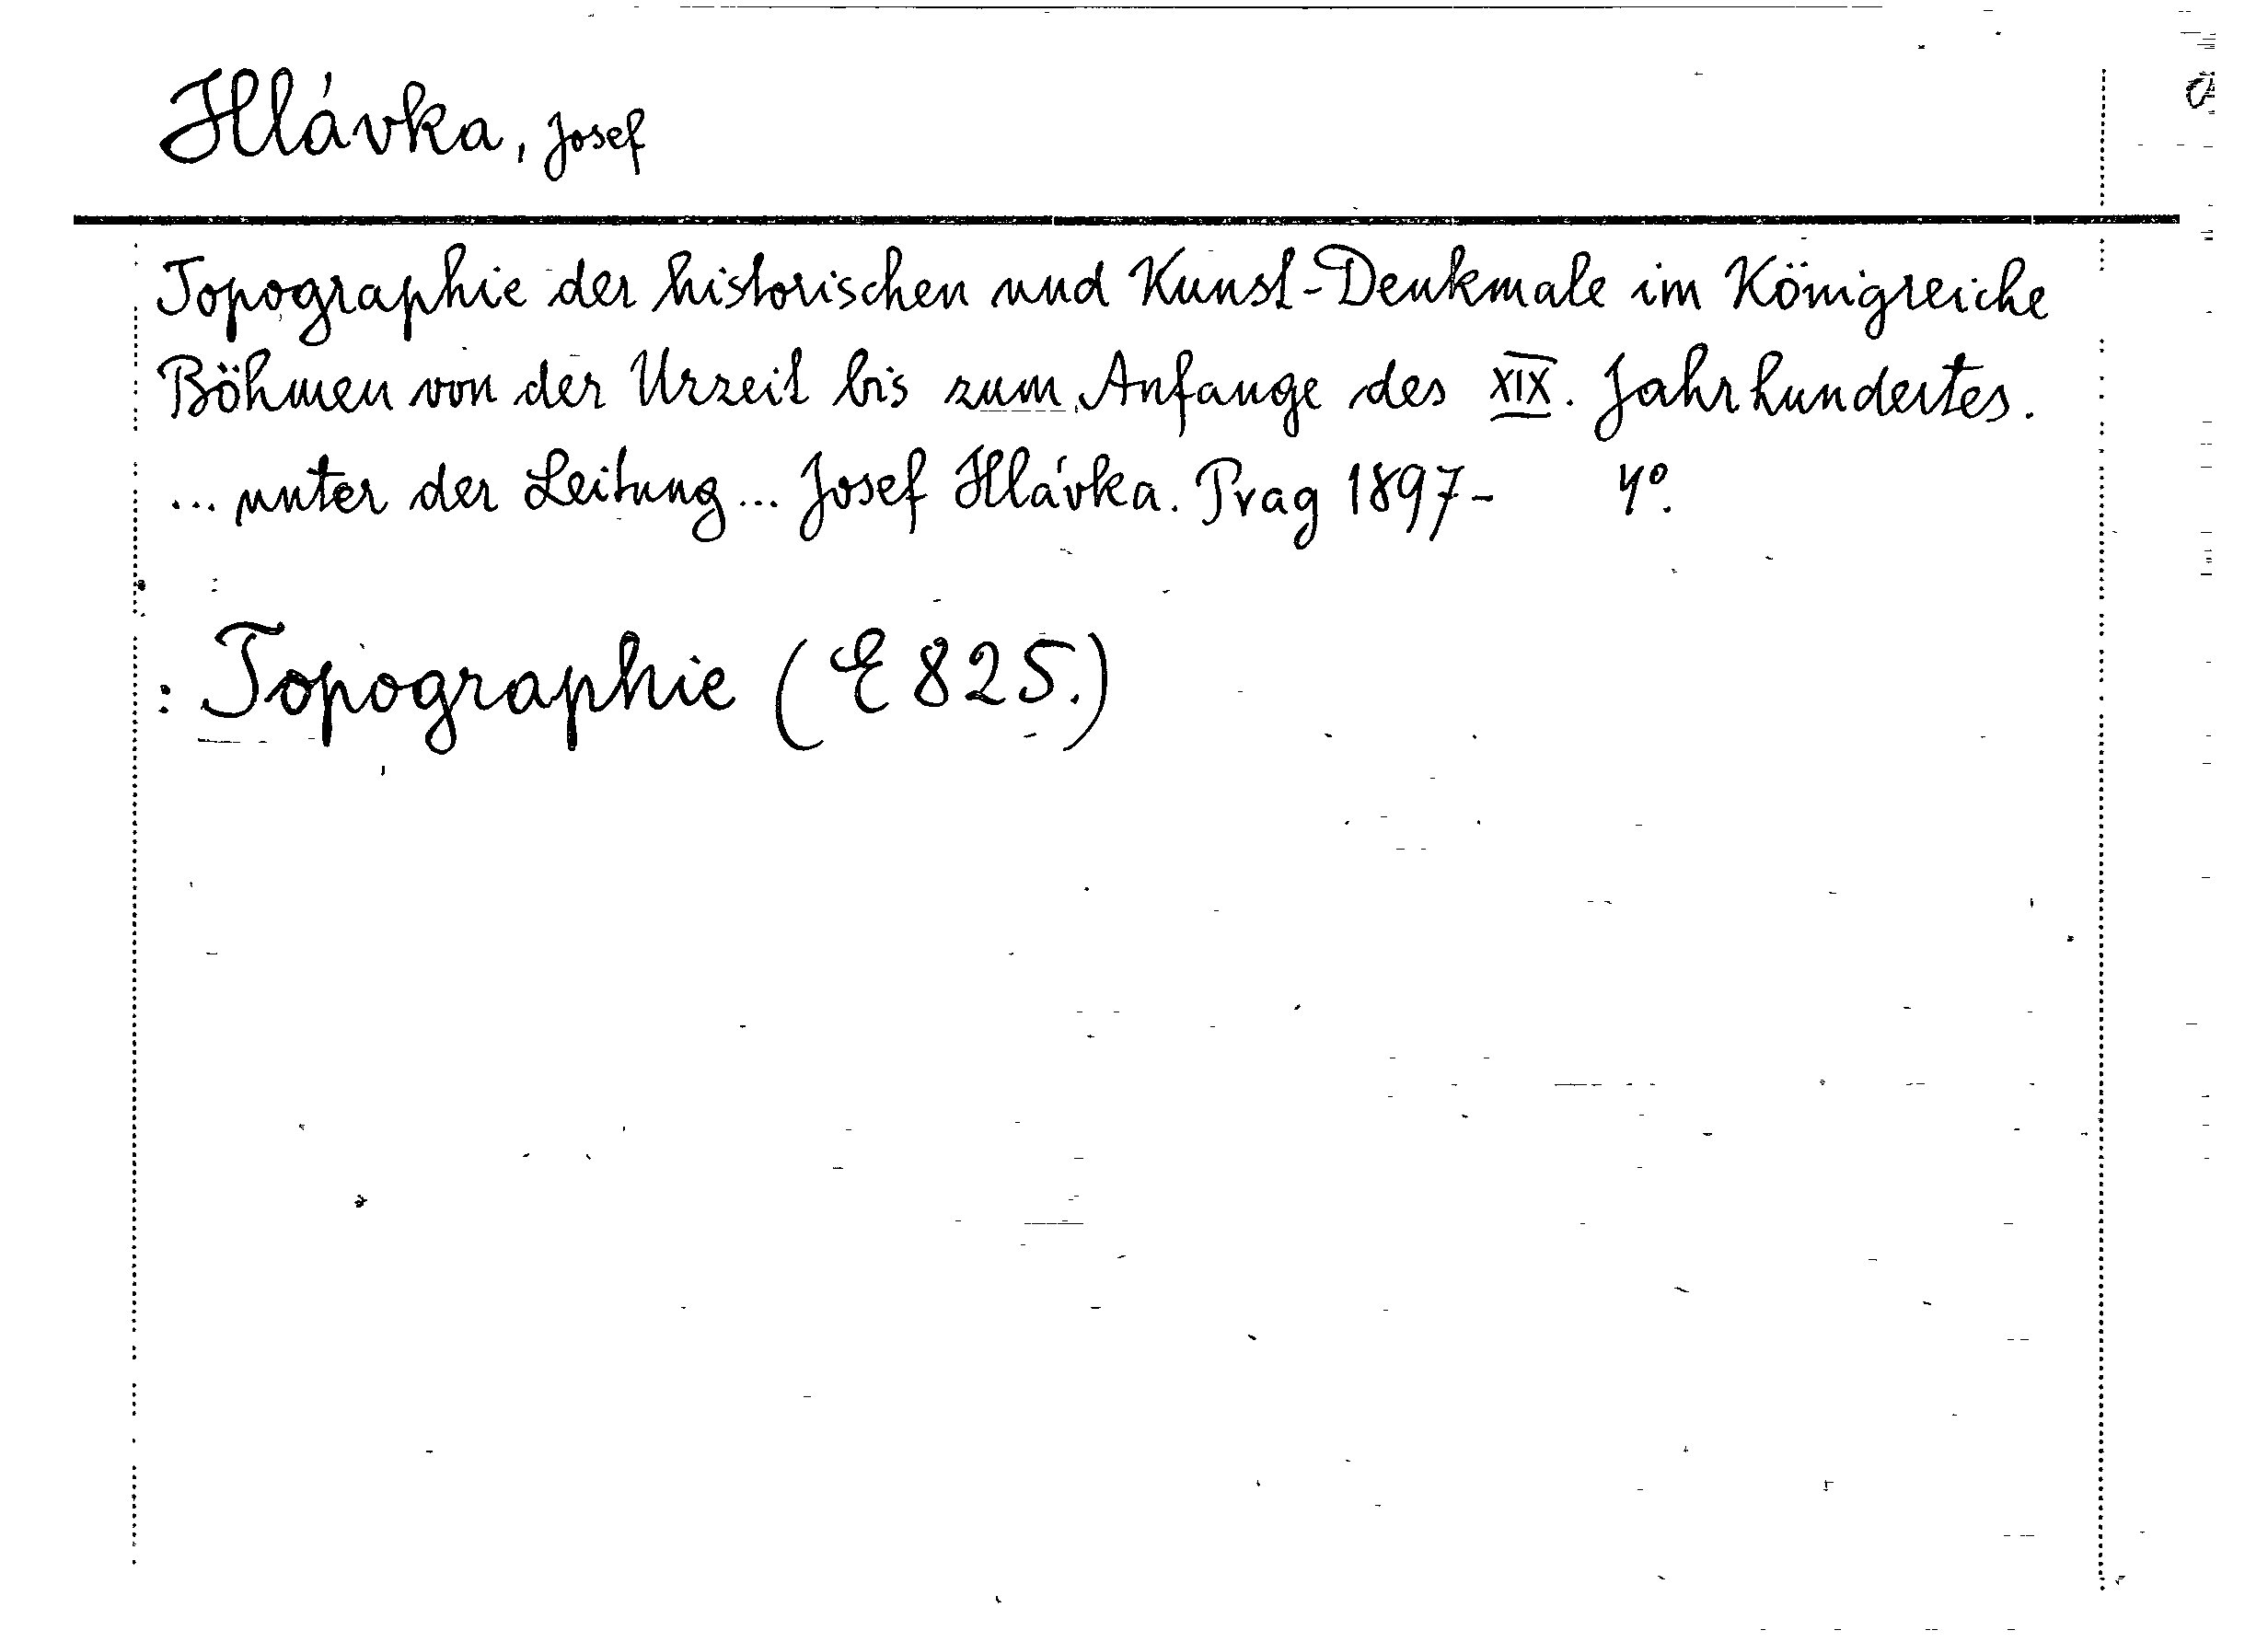 Hlávka, Josef
Topographie der historischen und Kunst-Denkmale im Königreiche
Böhmen von der Urzeit bis zum Anfange des XIX. Jahrhundertes.
... unter der Leitung ... Josef Hlávka. Prag 1897- 4°.
: Topographie (E 825.)